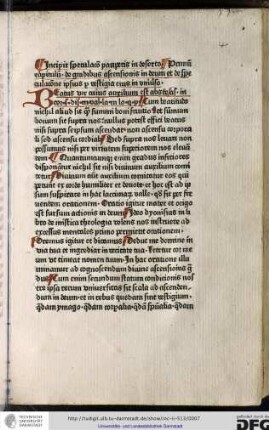 Incipit speculatio pauperis in deserto Primum
capitulum de gradibus ascensionis in deum et de spe
culatione ipsius per vestigia eius in universo
Beatus vir cuius auxilium est abs te
Cum beatitudo
nichil aliud sit
bonum sit supra nos nullus potest effici beatus
nisi supra seipsum ascendat non ascensu corpora
li sed ascensu cordiali Sed supra nos levari non
possumus nisi per virtutem superiorem nos eleva
tem
disponantur nichil fit nisi divinum auxilium comi
tetur Divinum autem auxilium comitatur eos qui
petunt ex corde humiliter et devote et hoc est ad ip
sum suspirare in hac lacrimarum valle quod fit per fer
ventem orationem Oratio igitur mater et origo
est sursum actionis in deum Ideo dyonisius in li
bro de mistica theologia volens nos instruere ad
excessus mentales primo permittit orationem
Oremus igitur et dicamus Deduc me domine in
via tua et ingrediar in veritate tua letetur cor me
um ut timeat nomen tuum In hac oratione illu
minamur ad cognoscendum divine ascensionis gra
dus Cum enim secundum statum conditionis nos
tre ipsa rerum universitas sit scala ad ascenden
dum in deum et in rebus quedam sint vestigium
quedam ymago quedam corporalia quedam spiritualia quedam
http://tudigit.ulb.tu-darmstadt.de/show/inc-ii-513/0007
Universitäts- und Landesbibliothek Darmstadt
TECHNISCHE
UNIVERSITÄT
DARMSTADT
gefördert durch die
DFG